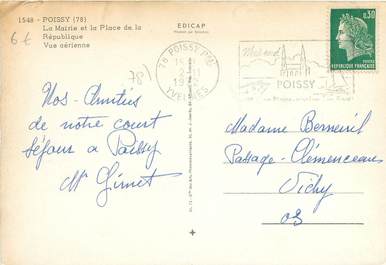 1548 - POISSY (78)
La Mairie et la Place de la
République
Vue aérienne
EDICAP
6€
78)
78 POISSY
YVELINES
POISSY
0,30
REPUBLIQUE FRANÇAISE
Nos Amitiés
de notre court
séjour à Poissy
Madame Berneuil
Passage-Clémenceau
Vichy
03